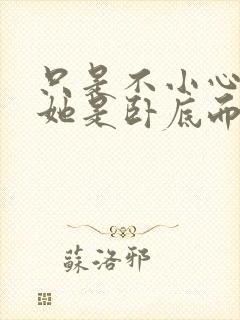 只是不小心
她是卧底而
蘇洛邪